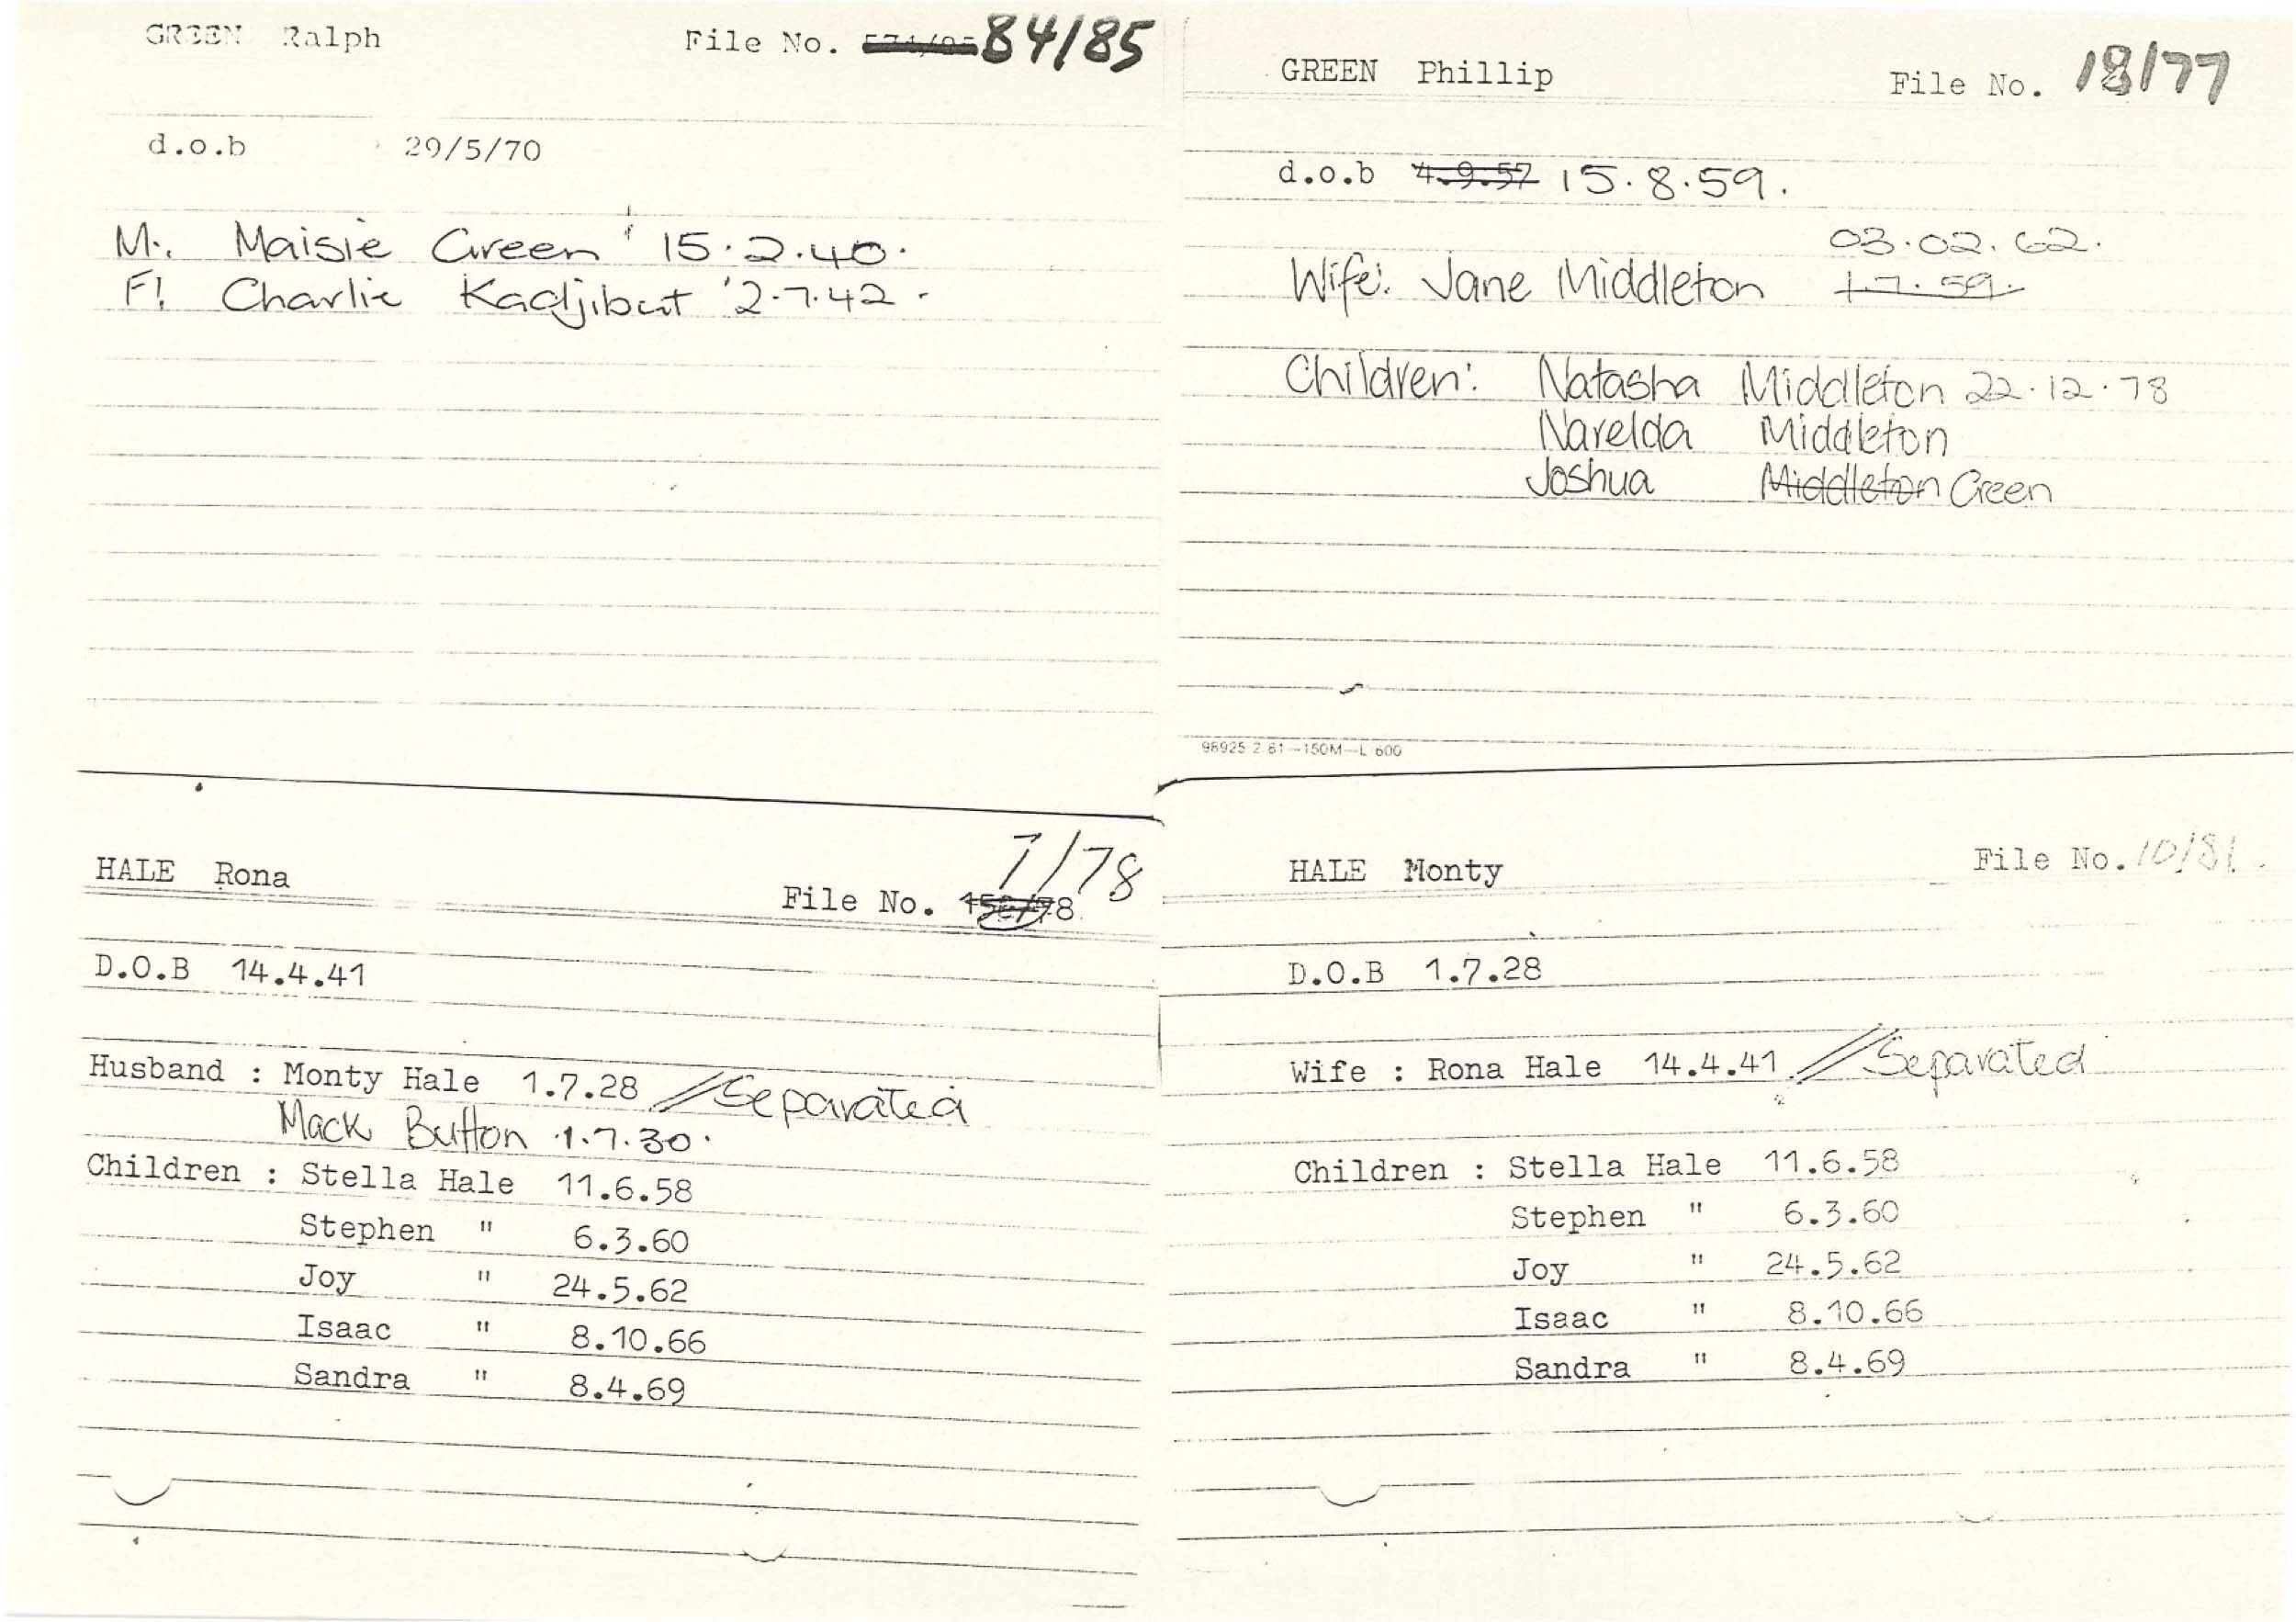 GREEN Ralph File No. 84/85
d.o.b 29/5/70
M: Maisie Green 15.2.40.
F: Charlie Kadjibut 2.7.42.
GREEN Phillip File No. 18/77
d.o.b 4.9.57 15.8.59.
03.02.62.
Wife: Jane Middleton 1.7.59.
Children: Natasha Middleton 22.12.78
Narelda Middleton
Joshua Middleton Green
98925 2 81—150M—L 600
HALE Rona 7/78
File No.
D.O.B 14.4.41
Husband : Monty Hale 1.7.28 // Separated
Mack Button 1.7.30.
Children : Stella Hale 11.6.58
Stephen " 6.3.60
Joy " 24.5.62
Isaac " 8.10.66
Sandra " 8.4.69
HALE Monty File No. 10/81.
D.O.B 1.7.28
Wife : Rona Hale 14.4.41 // Separated
Children : Stella Hale 11.6.58
Stephen " 6.3.60
Joy " 24.5.62
Isaac " 8.10.66
Sandra " 8.4.69